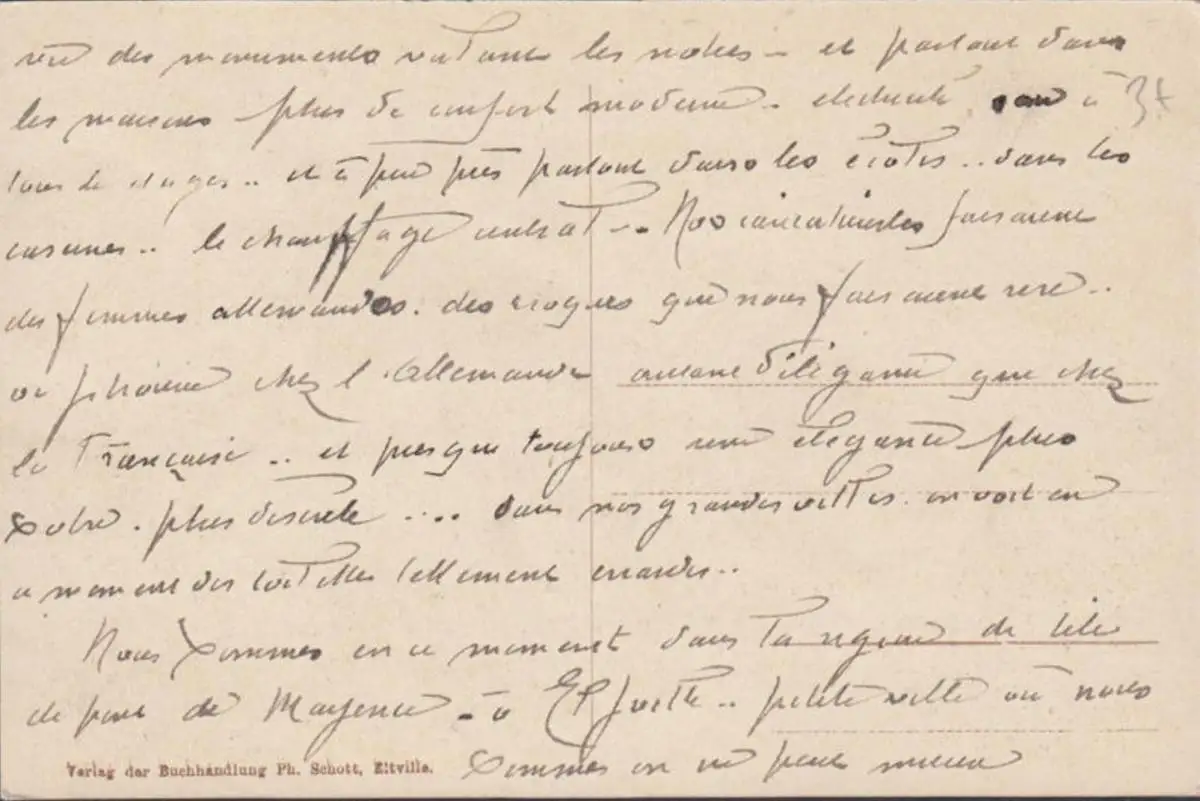 des monuments valant les notres – et partout dans
les maisons – plus de confort moderne. électricité, eau à
tous les étages.. et à peu près partout dans les écoles.. dans les
casernes.. le chauffage central –. Nos caricaturistes faisaient
des femmes allemandes. des croquis qui nous faisaient rire..
or j'ai trouvé chez l'Allemande autant d'élégance que chez
la Française .. et presque toujours une élégance plus
sobre. plus discrète .... dans nos grandes villes. on voit en
ce moment des toilettes tellement criardes..
Nous sommes en ce moment dans la région de tête
de pont de Mayence – à Eltville.. petite ville où nous
sommes on ne peut mieux
Verlag der Buchhandlung Ph. Schott, Eltville.